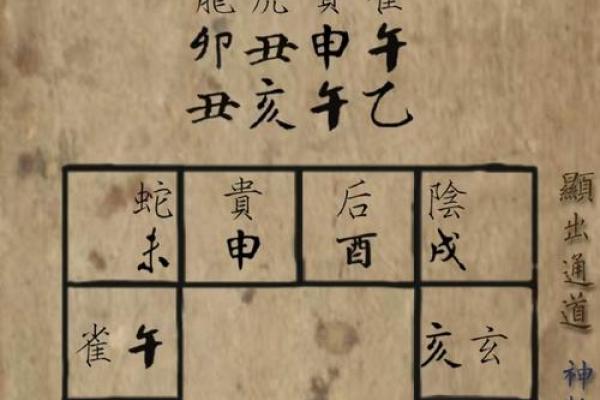 龍虎貴雀
卯丑申午
丑亥午乙
蛇貴后陰
未申酉戌
雀午亥玄
顯出通道
神